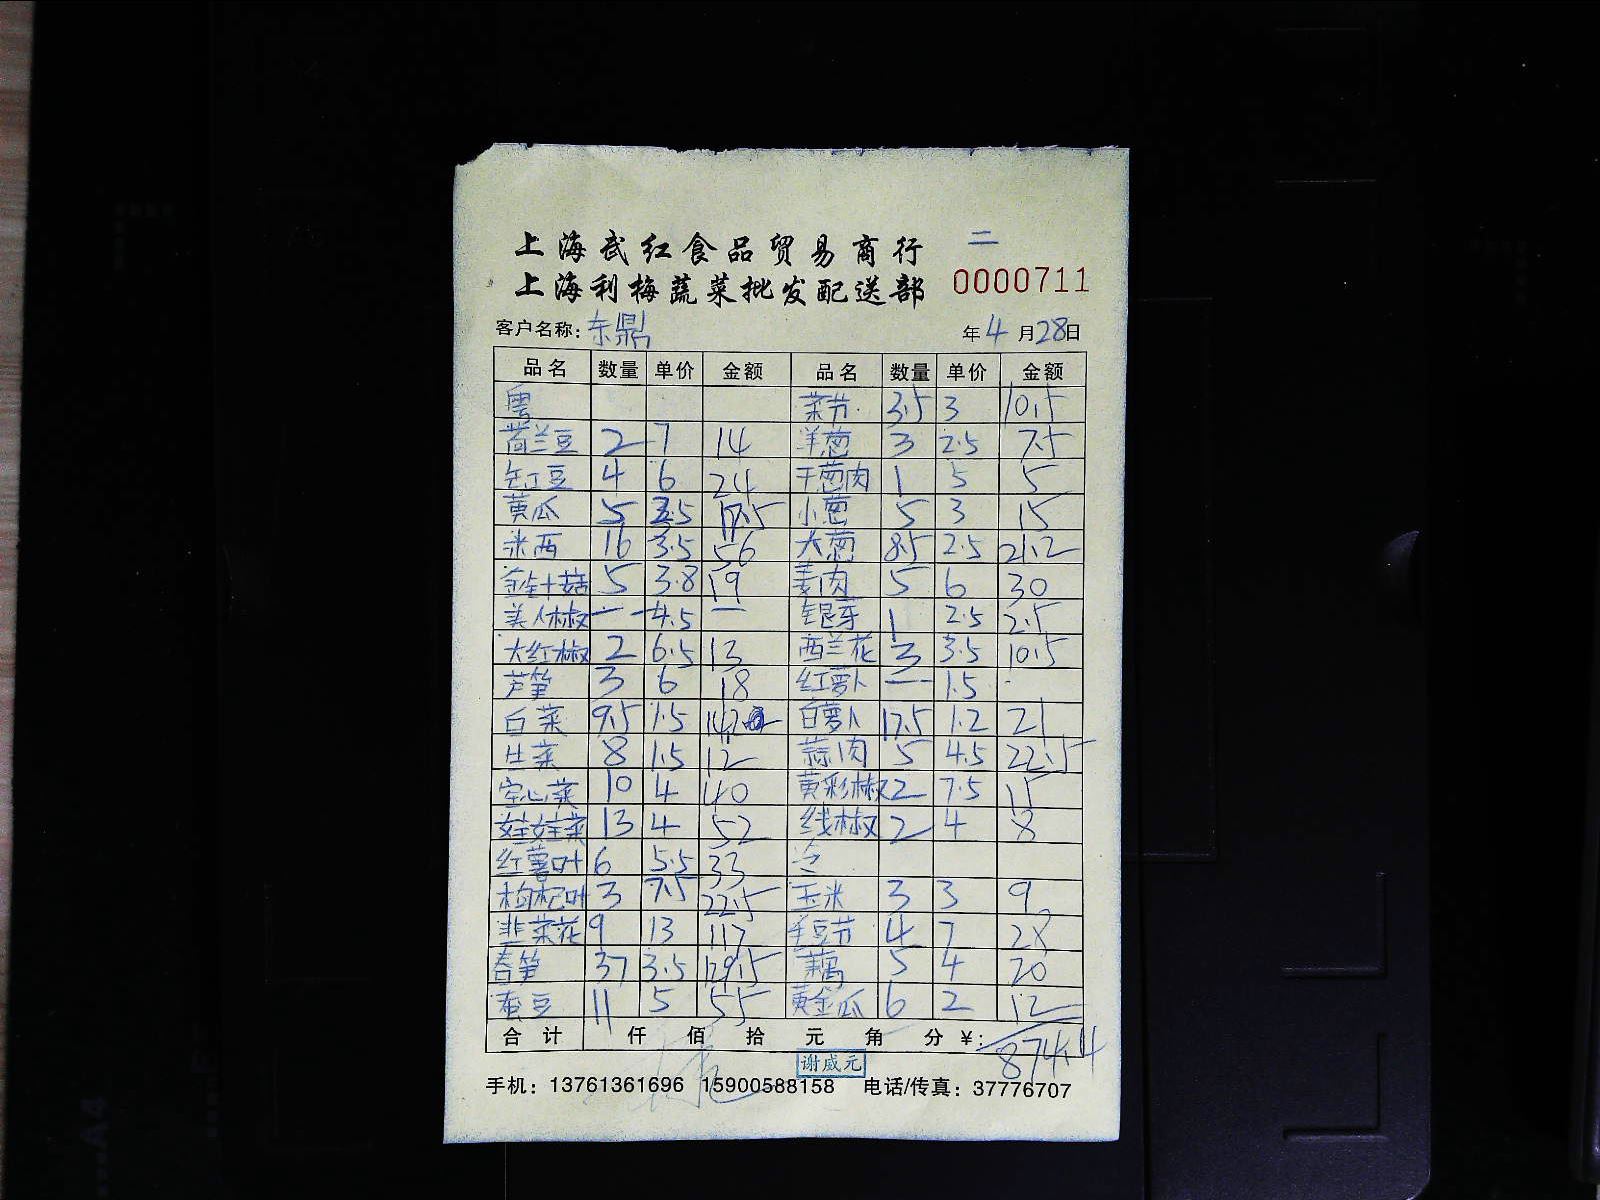 二
上海武红食品贸易商行
上海利梅蔬菜批发配送部 0000711
客户名称: 东鼎 年 4 月 28 日
品名 数量 单价 金额 品名 数量 单价 金额
粤 菜节 3.5 3 10.5
荷兰豆 2 7 14 洋葱 3 2.5 7.5
缸豆 4 6 24 干葱肉 1 5 5
黄瓜 5 3.5 17.5 小葱 5 3 15
米西 16 3.5 56 大葱 8.5 2.5 21.2
金针菇 5 3.8 19 姜肉 5 6 30
美人椒 一 4.5 一 银芽 1 2.5 2.5
大红椒 2 6.5 13 西兰花 3 3.5 10.5
芦笋 3 6 18 红萝卜 一 1.5
白菜 9.5 1.5 14.2 白萝卜 17.5 1.2 21
生菜 8 1.5 12 蒜肉 5 4.5 22.5
空心菜 10 4 40 黄彩椒 2 7.5 15
娃娃菜 13 4 52 线椒 2 4 8
红薯叶 6 5.5 33 冷
枸杞叶 3 7.5 22.5 玉米 3 3 9
韭菜花 9 13 117 毛豆节 4 7 28
春笋 37 3.5 129.5 藕 5 4 20
蚕豆 11 5 55 黄金瓜 6 2 12
合计 仟 佰 拾 元 角 分 ¥: 874.4
谢威元
手机: 13761361696 15900588158 电话/传真: 37776707
A4